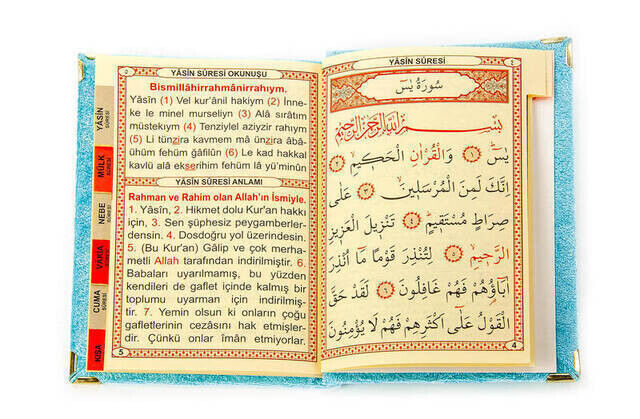 YÂSÎN SÛRESİ ٤
سُورَةُ يٰسٓ
بِسْمِ اللّٰهِ الرَّحْمٰنِ الرَّحِيمِ
يٰسٓ ﴿١﴾ وَالْقُرْاٰنِ الْحَكِيمِ ﴿٢﴾
اِنَّكَ لَمِنَ الْمُرْسَلِينَ ﴿٣﴾ عَلٰى
صِرَاطٍ مُسْتَقِيمٍ ﴿٤﴾ تَنْزِيلَ الْعَزِيزِ
الرَّحِيمِ ﴿٥﴾ لِتُنْذِرَ قَوْمًا مَٓا اُنْذِرَ
اٰبَٓاؤُهُمْ فَهُمْ غَافِلُونَ ﴿٦﴾ لَقَدْ حَقَّ
الْقَوْلُ عَلٰٓى اَكْثَرِهِمْ فَهُمْ لَا يُؤْمِنُونَ
4
٥ YÂSÎN SÛRESİ OKUNUŞU
Bismillâhirrahmânirrahıym.
Yâsîn (1) Vel kur'ânil hakiym (2) İnne-
ke le minel murseliyn (3) Alâ sırâtım
müstekıym (4) Tenziylel aziyzir rahıym
(5) Li tünzira kavmem mâ ünzira âbâ-
ühüm fehüm ğâfilûn (6) Le kad hakkal
kavlü alâ ekserihim fehüm lâ yü'minûn
YÂSÎN SÛRESİ ANLAMI
Rahman ve Rahim olan Allah'ın İsmiyle.
1. Yâsîn, 2. Hikmet dolu Kur'an hakkı
için, 3. Sen şüphesiz peygamberler-
densin. 4. Dosdoğru yol üzerindesin.
5. (Bu Kur'an) Gâlip ve çok merha-
metli Allah tarafından indirilmiştir. 6.
Babaları uyarılmamış, bu yüzden
kendileri de gaflet içinde kalmış bir
toplumu uyarman için indirilmiş-
tir. 7. Yemin olsun ki onların çoğu
gafletlerinin cezâsını hak etmişler-
dir. Çünkü onlar îmân etmiyorlar.
5
YÂSÎN SÛRESİ
MÜLK SÛRESİ
NEBE SÛRESİ
VAKIA SÛRESİ
CUMA SÛRESİ
KISA